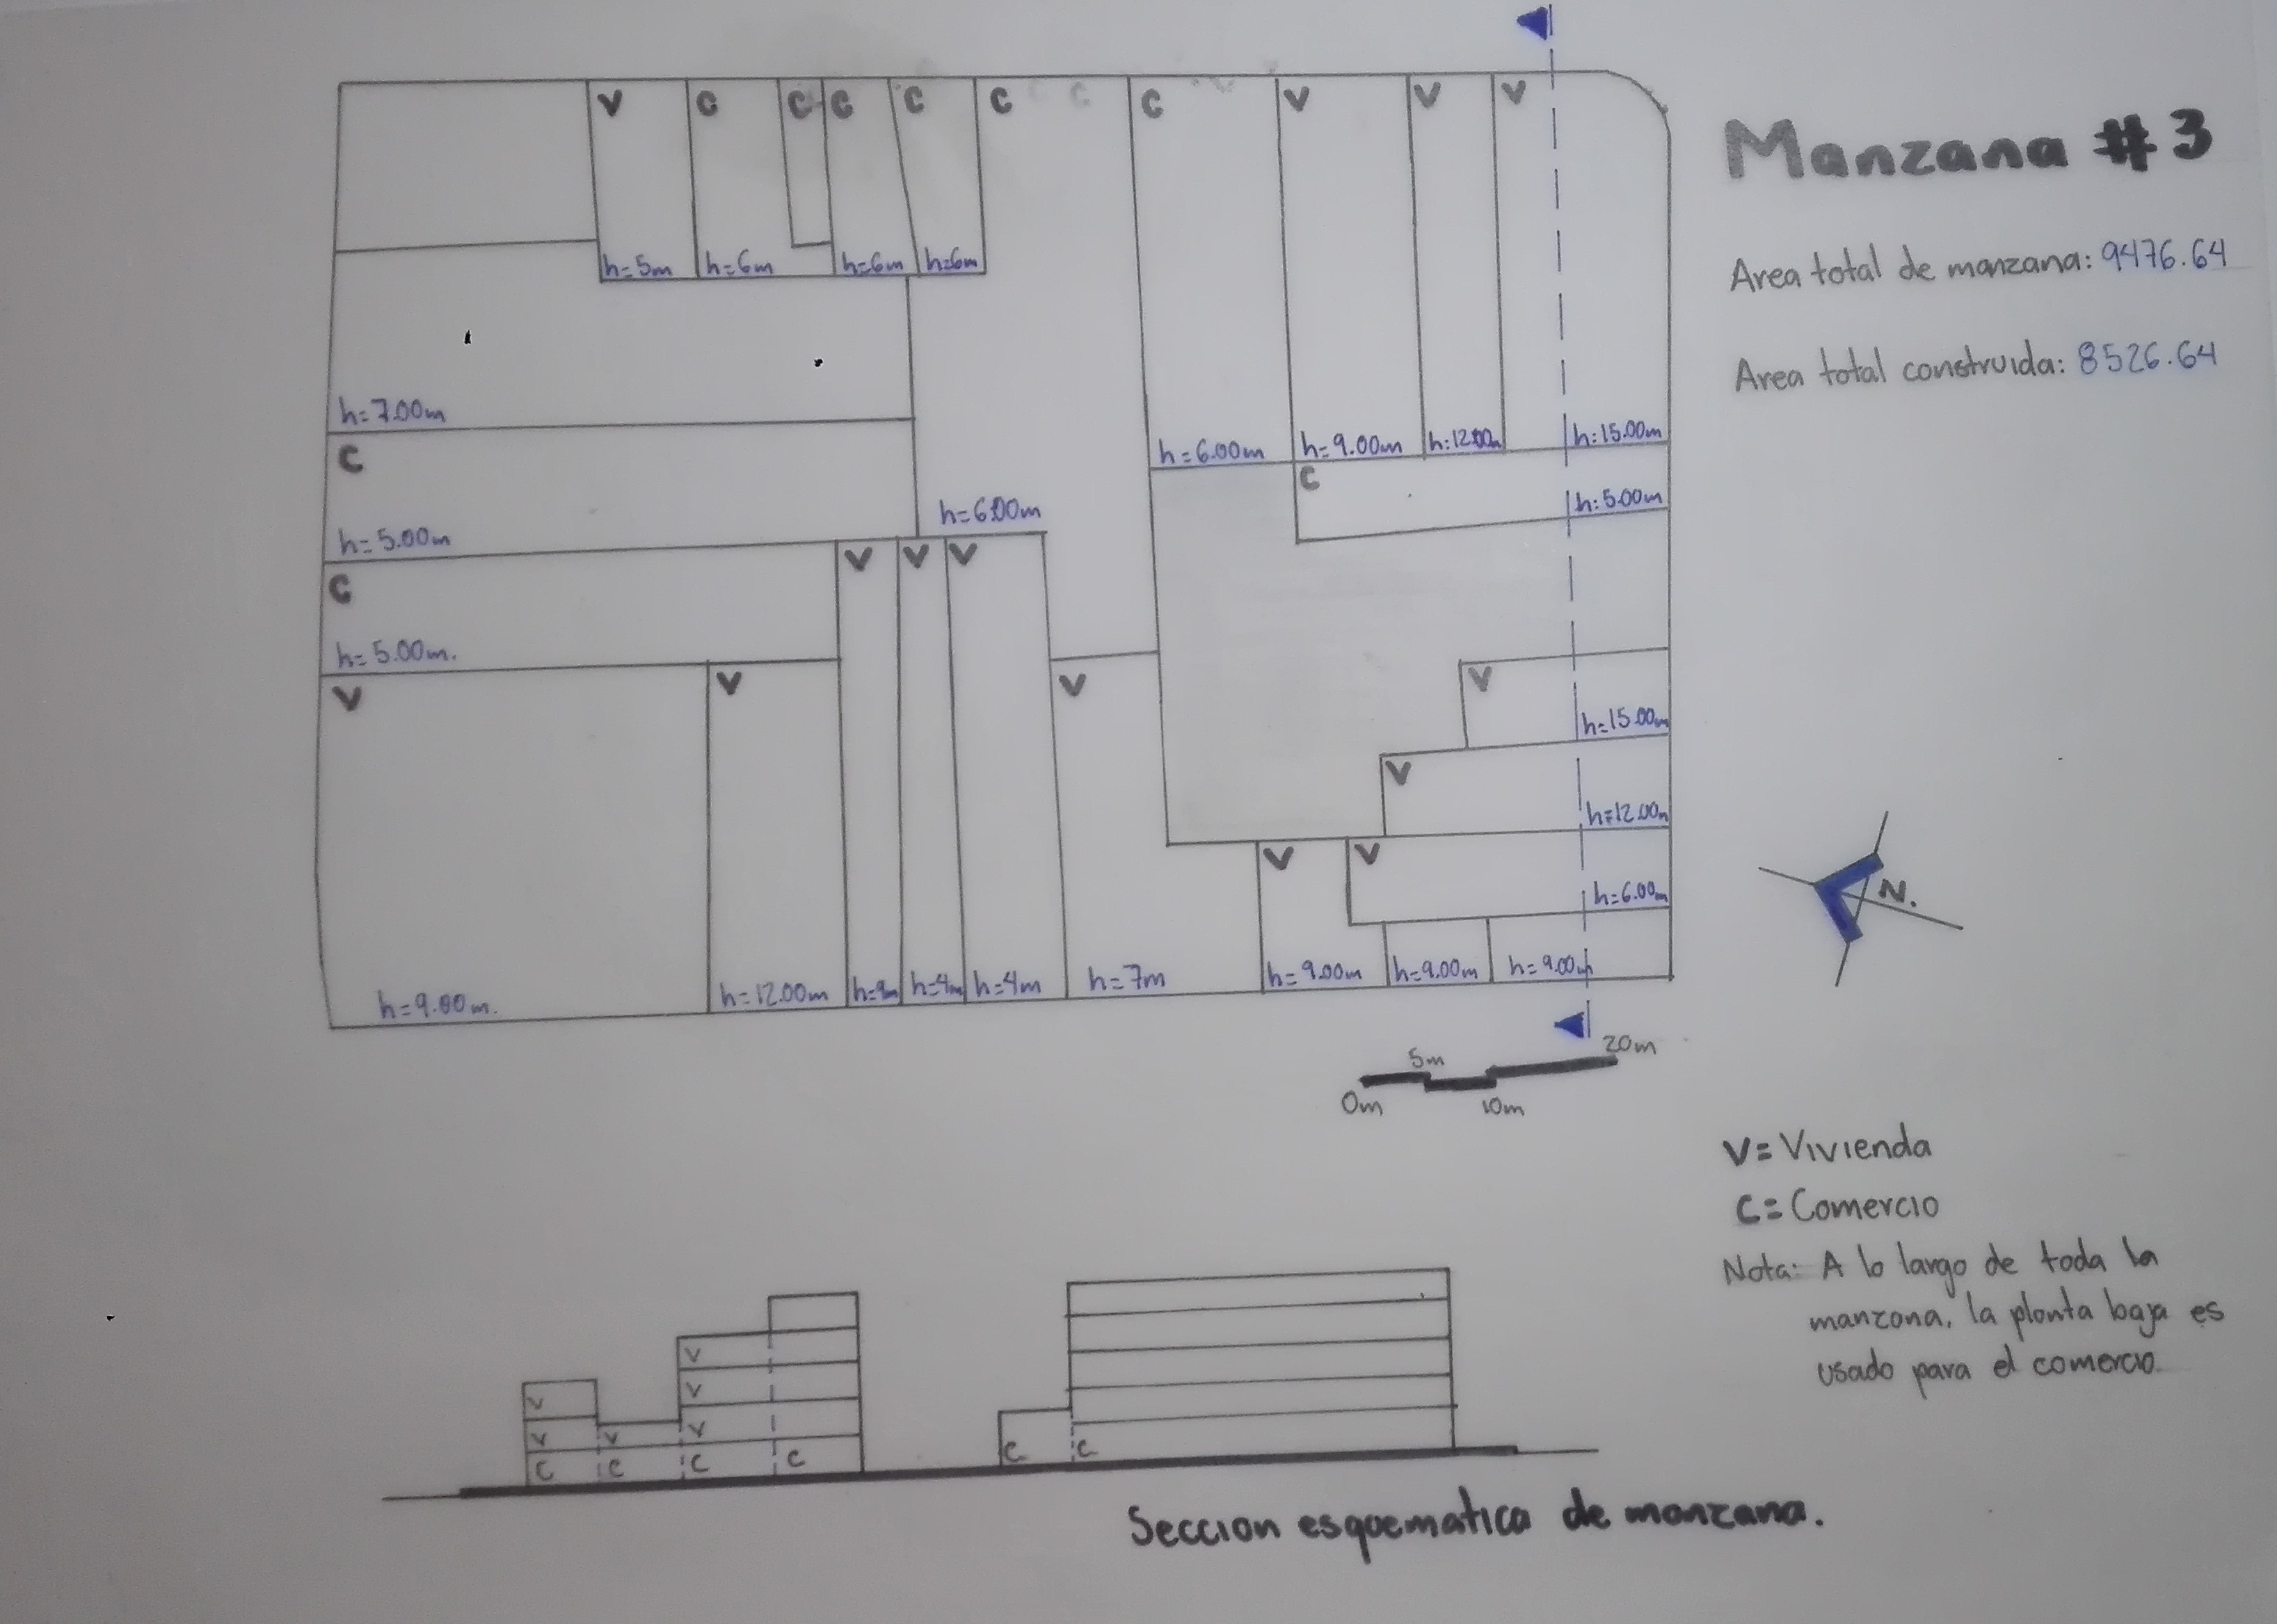 V C C C C C C V V V
Manzana # 3
Area total de manzana: 9476.64
h=5m h=6m h=6m h=6m
Area total construida: 8526.64
h=7.00m
h=6.00m h=9.00m h:12.00m h:15.00m
C
C
h:5.00m
h=6.00m
h=5.00m
V V V
C
h=5.00m.
V V V V
h=15.00m
V
h=12.00m
V V
h=6.00m
N.
h=9.00m. h=12.00m h=4m h=4m h=7m h=9.00m h=9.00m h=9.00m
5m 20m
0m 10m
V= Vivienda
C= Comercio
Nota: A lo largo de toda la
manzona, la planta baja es
usado para el comercio.
V
V V
V V V
C C C C C C
Seccion esquematica de manzana.